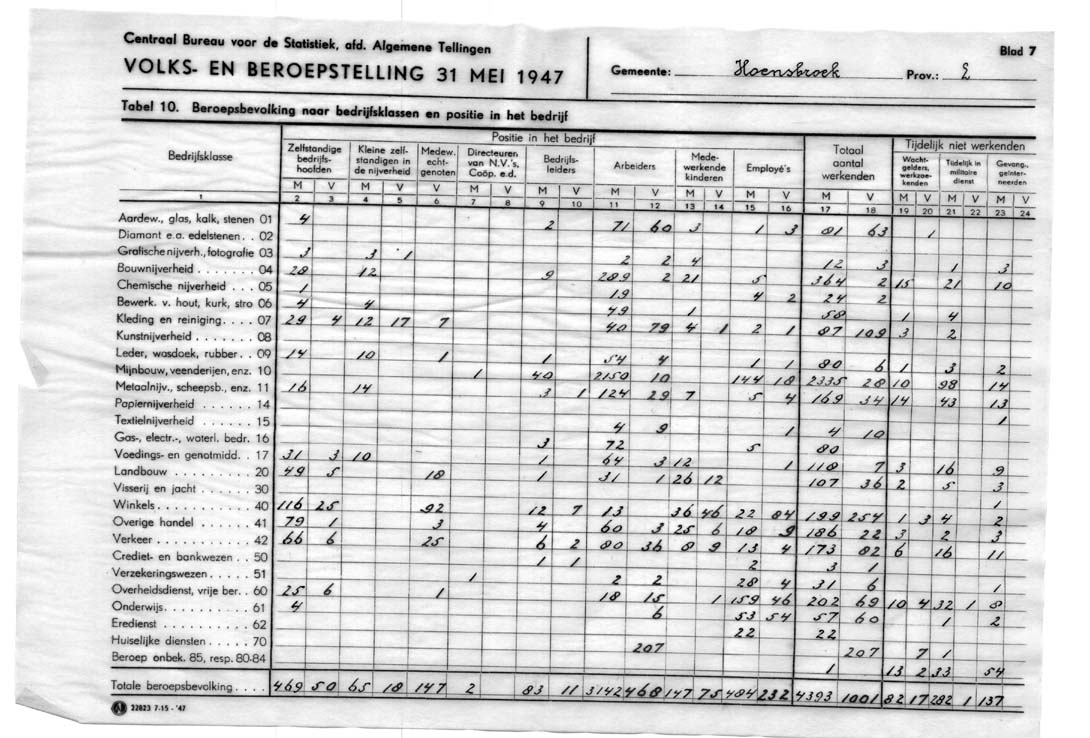 Centraal Bureau voor de Statistiek, afd. Algemene Tellingen
VOLKS- EN BEROEPSTELLING 31 MEI 1947
Gemeente: Hoensbroek Prov.: L
Blad 7
Tabel 10. Beroepsbevolking naar bedrijfsklassen en positie in het bedrijf
Bedrijfsklasse
Positie in het bedrijf
Zelfstandige bedrijfs-hoofden
Kleine zelf-standigen in de nijverheid
Medew. echt-genoten
Directeuren van N.V.'s, Coöp. e.d.
Bedrijfs-leiders
Arbeiders
Mede-werkende kinderen
Employé's
Totaal aantal werkenden
Tijdelijk niet werkenden
Wacht-gelders, werkzoe-kenden
Tijdelijk in militaire dienst
Gevang., geïnter-neerden
M V M V V M V M V M V M V M V M V M V M V M V
1 2 3 4 5 6 7 8 9 10 11 12 13 14 15 16 17 18 19 20 21 22 23 24
Aardew., glas, kalk, stenen 01 4 2 71 60 3 1 3 81 63 1
Diamant e.a. edelstenen . . 02
Grafische nijverh., fotografie 03 3 3 1 2 2 4 12 3 1 3
Bouwnijverheid . . . . . . . 04 28 12 9 289 2 21 5 364 2 15 21 10
Chemische nijverheid . . . 05 1 19 4 2 24 2
Bewerk. v. hout, kurk, stro 06 4 4 49 1 58 1 4
Kleding en reiniging. . . . 07 29 4 12 17 7 40 79 4 1 2 1 87 109 3 2
Kunstnijverheid . . . . . . 08
Leder, wasdoek, rubber. . 09 14 10 1 1 54 4 1 1 80 6 1 3 2
Mijnbouw, veenderijen, enz. 10 1 40 2150 10 144 18 2335 28 10 98 14
Metaalnijv., scheepsb., enz. 11 16 14 3 1 124 29 7 5 4 169 34 14 43 13
Papiernijverheid . . . . . . 14 1
Textielnijverheid . . . . . . 15 4 9 1 4 10
Gas-, electr.-, waterl. bedr. 16 3 72 5 80
Voedings- en genotmidd. . 17 31 3 10 1 64 3 12 1 118 7 3 16 9
Landbouw . . . . . . . . . 20 49 5 18 1 31 1 26 12 107 36 2 5 3
Visserij en jacht . . . . . . 30 1
Winkels . . . . . . . . . . 40 116 25 92 12 7 13 36 46 22 84 199 254 1 3 4 2
Overige handel . . . . . . 41 79 1 3 4 60 3 25 6 18 9 186 22 3 2 3
Verkeer . . . . . . . . . . 42 66 6 25 6 2 80 36 8 9 13 4 173 82 6 16 11
Crediet- en bankwezen . . 50 1 1 2 3 1
Verzekeringswezen . . . . 51 1 2 2 28 4 31 6 1
Overheidsdienst, vrije ber. . 60 25 6 1 18 15 1 159 46 202 69 10 4 32 1 8
Onderwijs. . . . . . . . . . 61 4 6 53 54 57 60 1 2
Eredienst . . . . . . . . . 62 22 22
Huiselijke diensten . . . . 70 207 207 7 1
Beroep onbek. 85, resp. 80-84 1 13 2 33 54
Totale beroepsbevolking . . . . 469 50 65 18 147 2 83 11 3142 468 147 75 484 232 4393 1001 82 17 282 1 137
22823 7-15 - '47